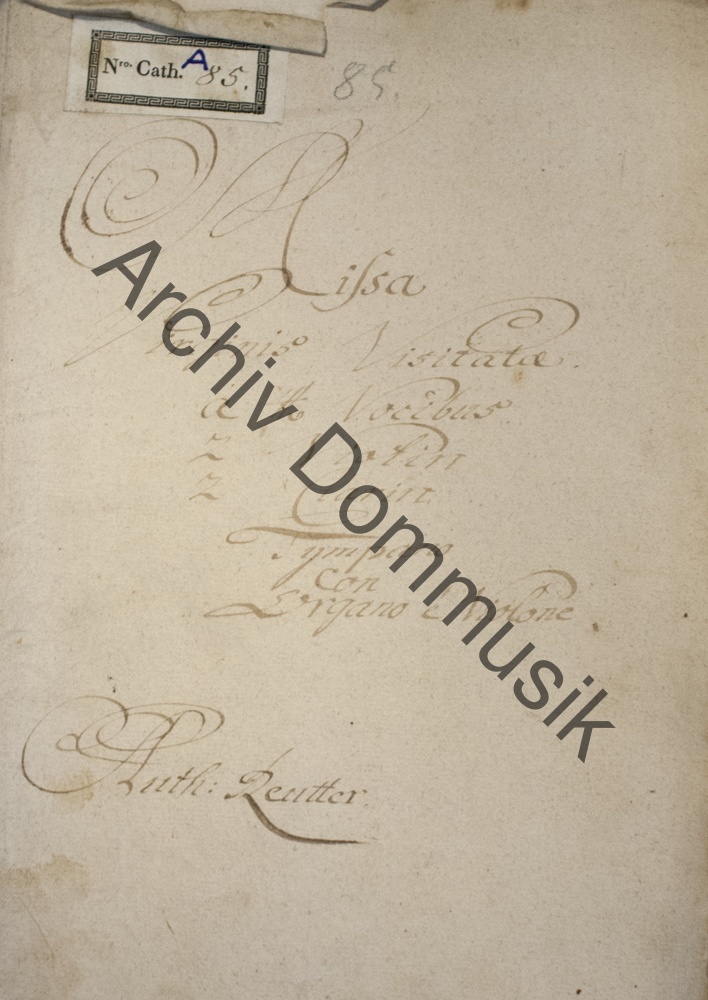 Nro. Cath. A 85.
85.
Missa
Visitatæ.
a 4 Vocibus
2 Violin
2 Clarin
Tympano
Con
Organo e Violone.
Auth: Reutter.
Archiv Dommusik